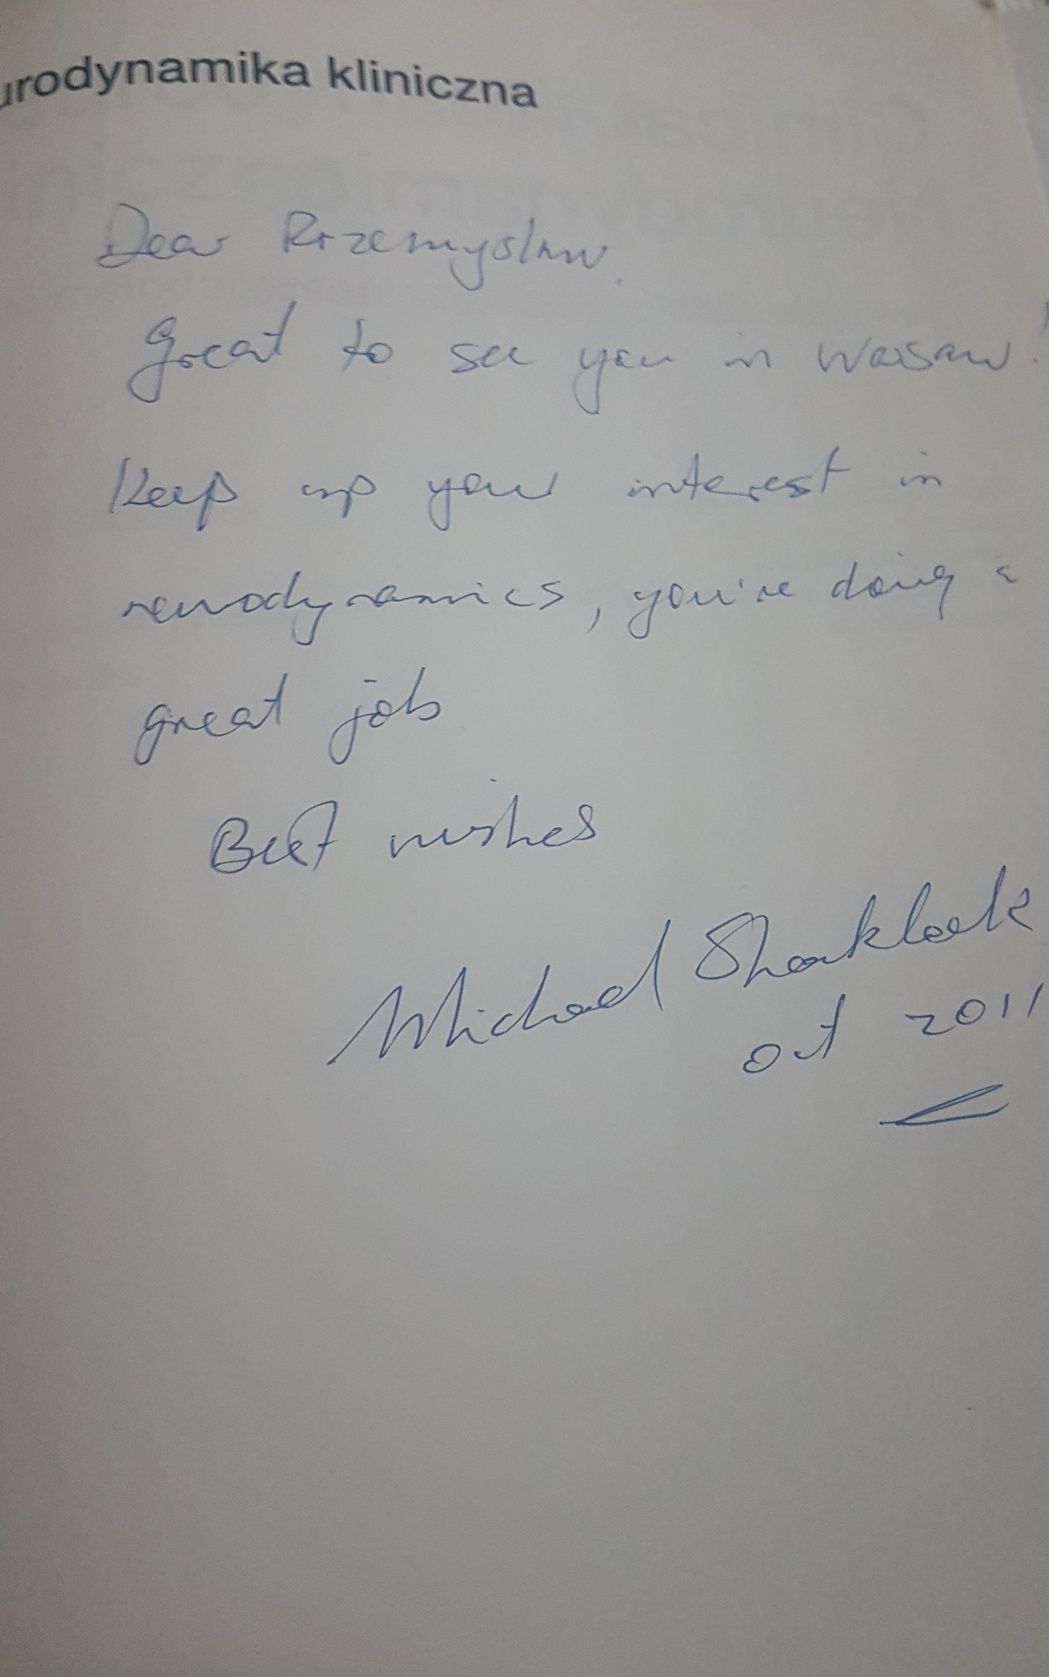 urodynamika kliniczna
Dear Przemyslaw.
Great to see you in Warsaw!
Keep up your interest in
neurodynamics, you're doing a
great job
Best wishes
Michael Shacklock
Oct 2011